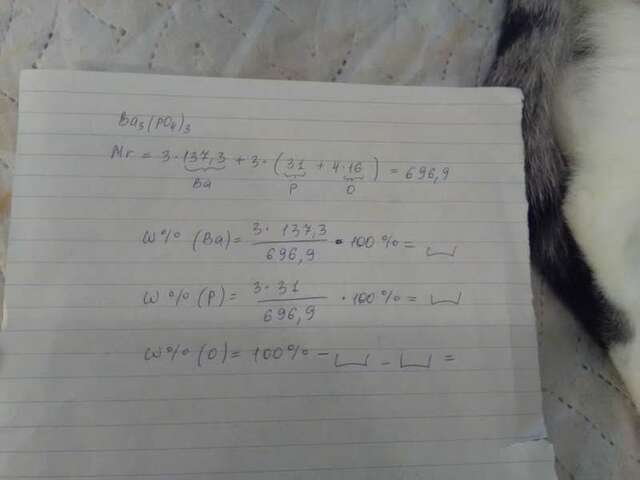 Ba₃(PO₄)₃
Mr = 3·137,3 + 3·(31 + 4·16) = 696,9
Ba P O
W% (Ba) = 3·137,3 / 696,9 · 100% =
W% (P) = 3·31 / 696,9 · 100% =
W% (O) = 100% - - =